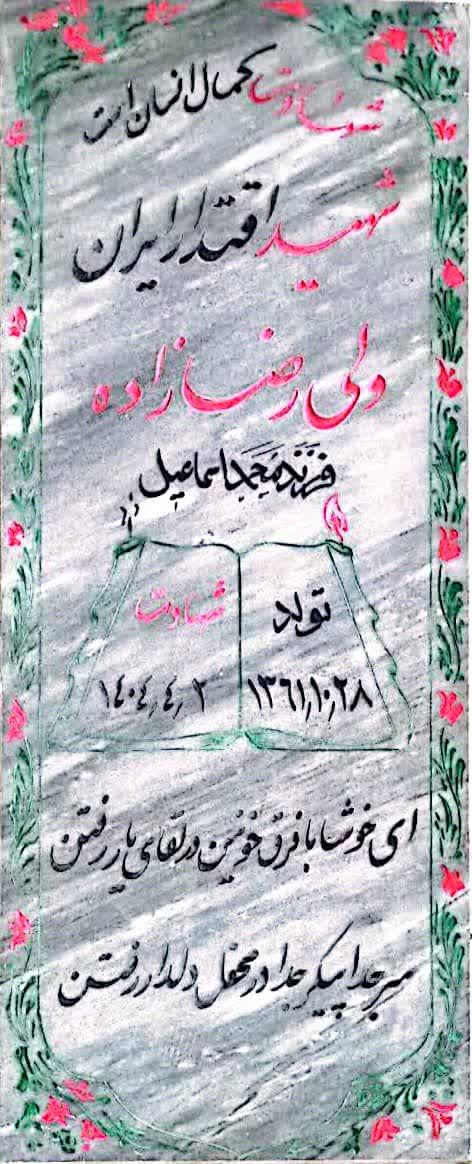 شهادت کمال انسان است
شهید اقتدار ایران
ولی رضا زاده
فرزند محمد اسماعیل
تولد شهادت
۱۳۶۱٫۱۰٫۲۸ ۱۴۰۴٫۴٫۲
ای خوشا با فرق خونین در لقای یار رفتن
سر جدا پیکر جدا در محفل دلدار رفتن